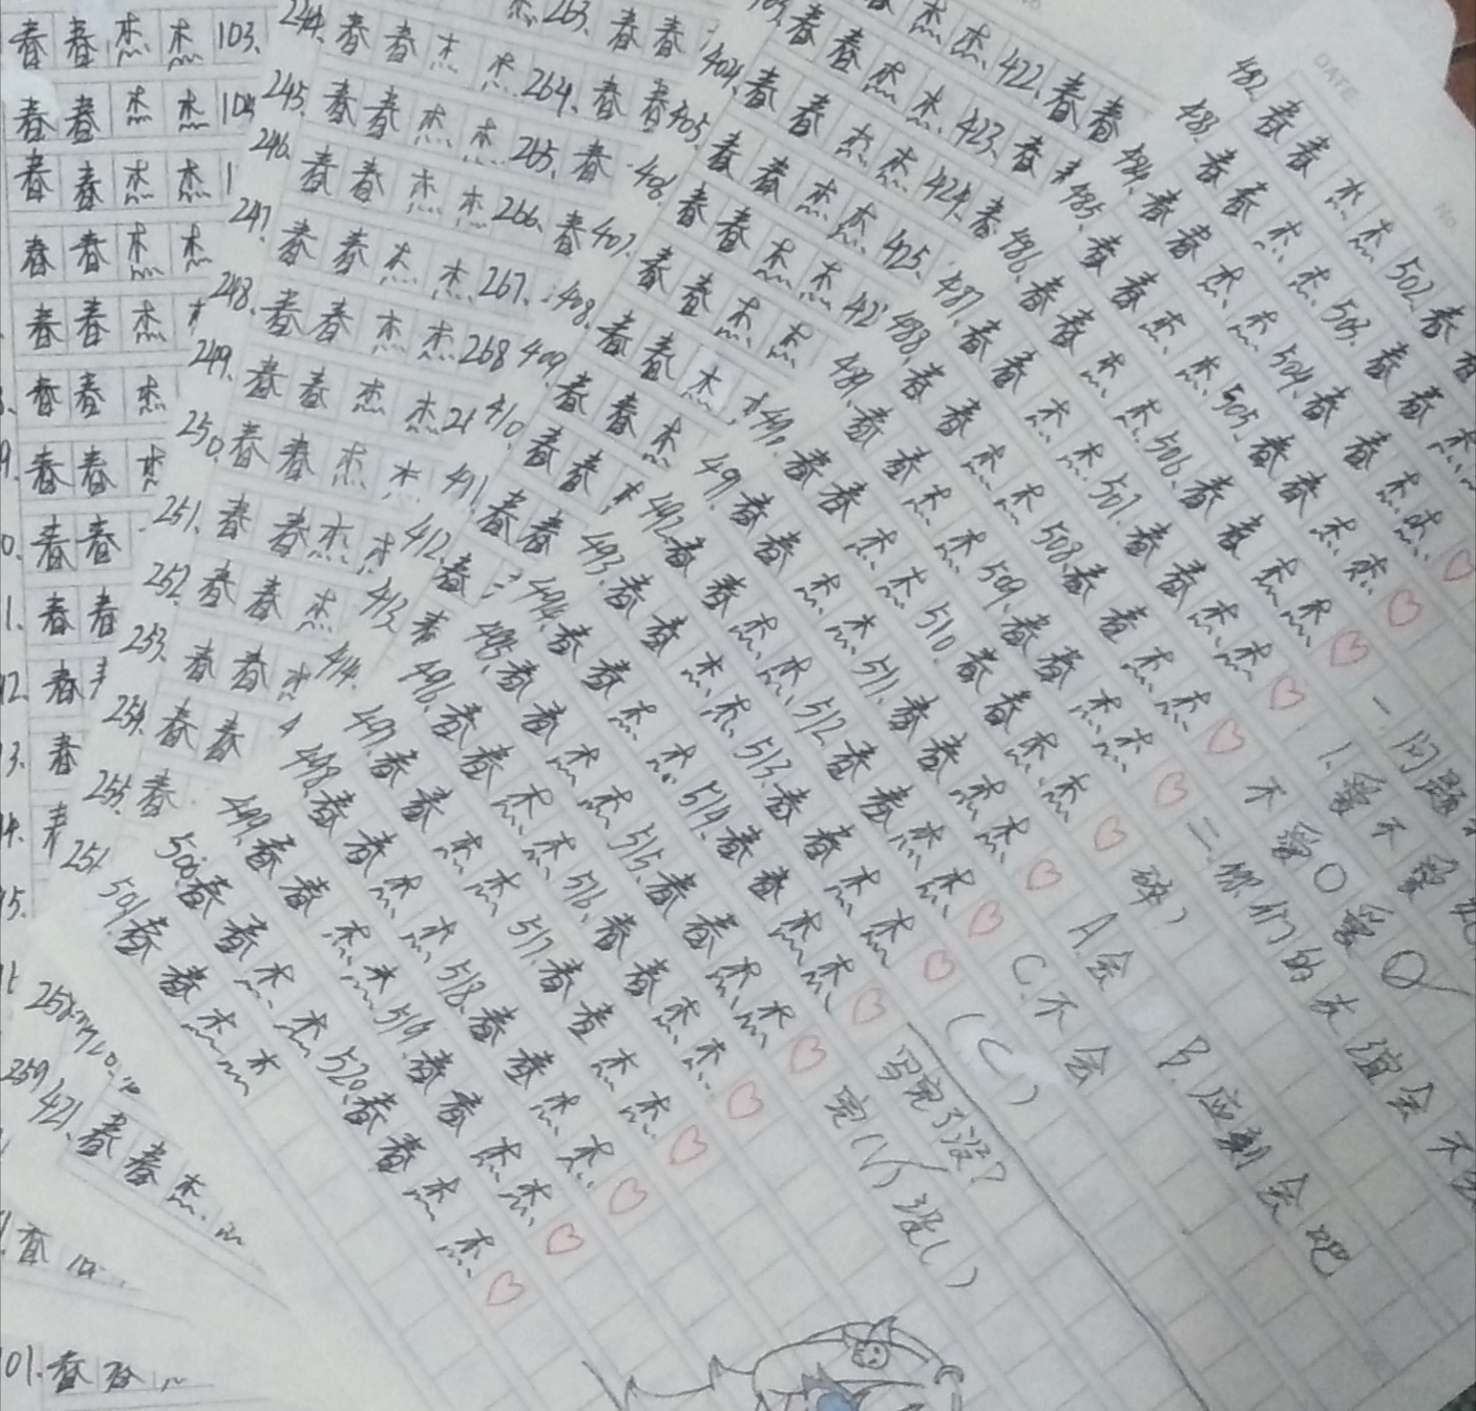 春春杰杰103.
春春杰杰104
春春杰杰1
春春杰杰
春春杰
春春杰
春春杰
春春
春春
春
春
263.春春
244.春春杰杰264.春春
245.春春杰杰265.春
246.春春杰杰266.春
247.春春杰杰267.
248.春春杰杰268
249.春春杰杰2
250.春春杰杰
251.春春杰杰
252.春春杰
253.春春杰
254.春春
255.春
256
258.
259.
春杰杰422.春春
春春杰杰423.春
404.春春杰杰424.春
405.春春杰杰425.
406.春春杰杰42
407.春春杰杰
408.春春杰
409.春春杰
410.春春
411.春春
412.春
413.
414.
421.春春杰
101.春
482.春春杰杰502.春春杰杰♡
483.春春杰杰503.春春杰杰♡
484.春春杰杰504.春春杰杰♡
485.春春杰杰505.春春杰杰♡
486.春春杰杰506.春春杰杰♡
487.春春杰杰507.春春杰杰♡
488.春春杰杰508.春春杰杰♡
489.春春杰杰509.春春杰杰♡
490.春春杰杰510.春春杰杰♡
491.春春杰杰511.春春杰杰♡
492.春春杰杰512.春春杰杰♡
493.春春杰杰513.春春杰杰♡
494.春春杰杰514.春春杰杰♡
495.春春杰杰515.春春杰杰♡
496.春春杰杰516.春春杰杰♡
497.春春杰杰517.春春杰杰♡
498.春春杰杰518.春春杰杰♡
499.春春杰杰519.春春杰杰♡
500.春春杰杰520.春春杰杰♡
501.春春杰杰
一问题
1.爱不爱
不爱〇爱〇√
二.你们的友谊会不会
碎)
A.会 B.应刻会吧
C.不会
(C)
写完了没?
完(√)没( )
DATE
No